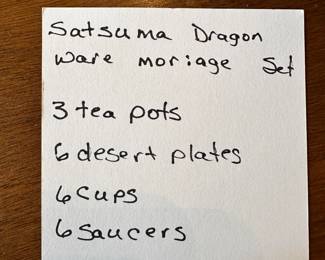 Satsuma Dragon
Ware moriage Set
3 tea pots
6 desert plates
6 cups
6 saucers